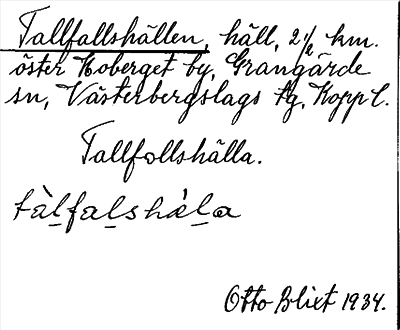 Tallfallshällen, häll, 2 1/2 km.
öster Koberget by, Grangärde
sn, Västerbergslags tg, Kopp l.
Tallfollshälla.
tàlfalshæ̀la
Otto Blixt 1934.